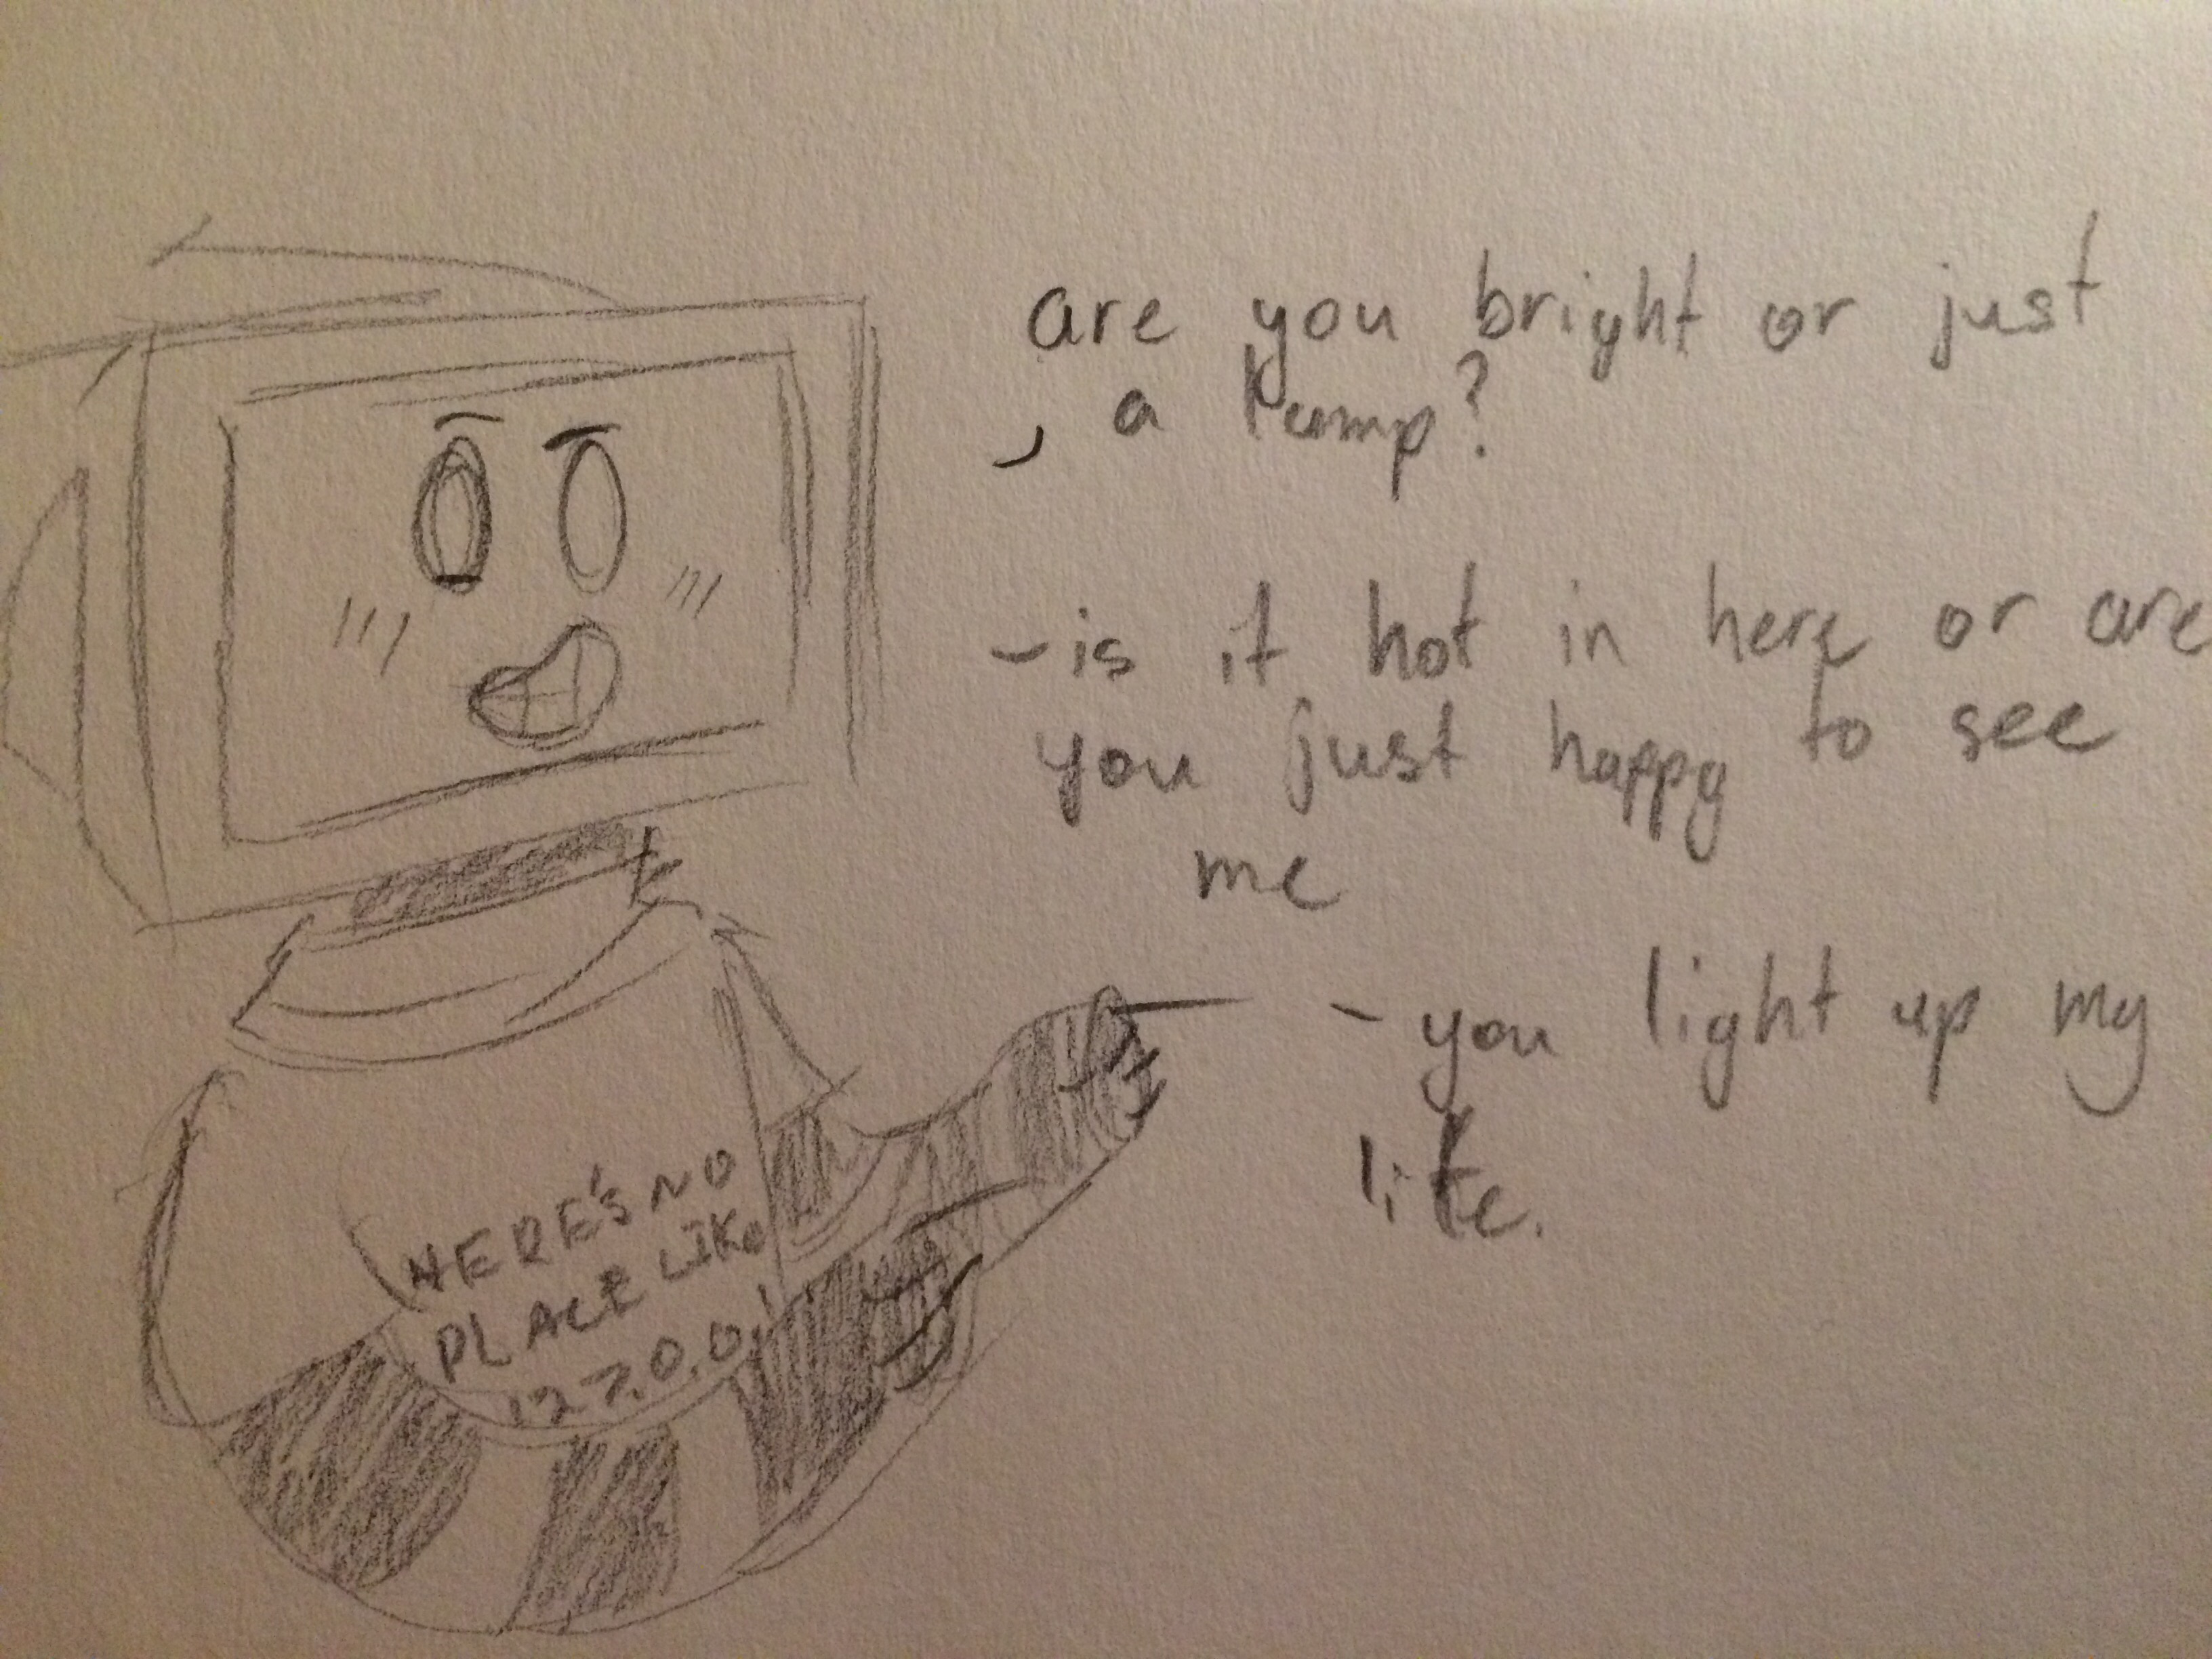 are you bright or just
a lamp?
-is it hot in here or are
you just happy to see
me
-you light up my
life.
HERE'S NO
PLACE LIKE
127.0.0.